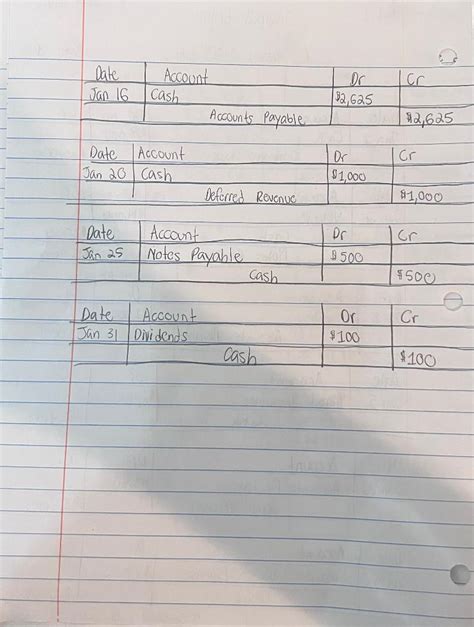 Date Account Dr Cr
Jan 16 Cash $2,625
Accounts Payable $2,625
Date Account Dr Cr
Jan 20 Cash $1,000
Deferred Revenue $1,000
Date Account Dr Cr
Jan 25 Notes Payable $500
Cash $500
Date Account Dr Cr
Jan 31 Dividends $100
Cash $100